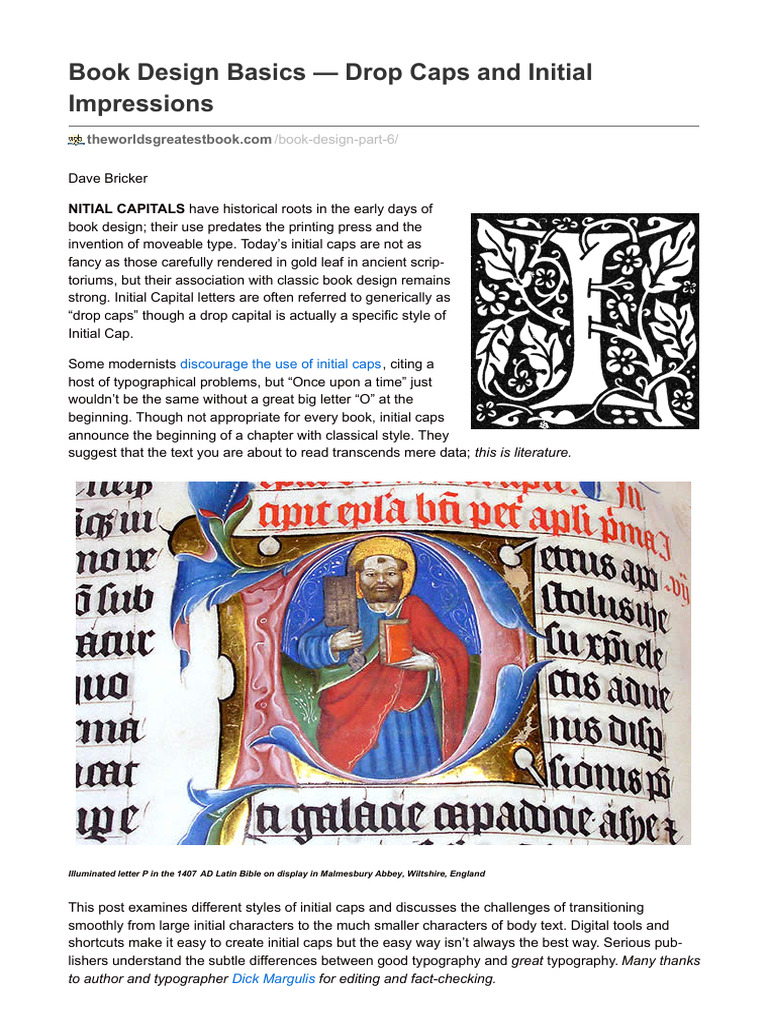 Book Design Basics — Drop Caps and Initial
Impressions
wgb theworldsgreatestbook.com/book-design-part-6/
Dave Bricker
NITIAL CAPITALS have historical roots in the early days of
book design; their use predates the printing press and the
invention of moveable type. Today’s initial caps are not as
fancy as those carefully rendered in gold leaf in ancient scrip-
toriums, but their association with classic book design remains
strong. Initial Capital letters are often referred to generically as
“drop caps” though a drop capital is actually a specific style of
Initial Cap.
I
Some modernists discourage the use of initial caps, citing a
host of typographical problems, but “Once upon a time” just
wouldn’t be the same without a great big letter “O” at the
beginning. Though not appropriate for every book, initial caps
announce the beginning of a chapter with classical style. They
suggest that the text you are about to read transcends mere data; this is literature.
cipit epl'a bti pet' apli p'ma
etrus apo
stolus ihe
su xpi ele
ctis adue
nus disp
sionis po
ti galacie capadocie asye z
Illuminated letter P in the 1407 AD Latin Bible on display in Malmesbury Abbey, Wiltshire, England
This post examines different styles of initial caps and discusses the challenges of transitioning
smoothly from large initial characters to the much smaller characters of body text. Digital tools and
shortcuts make it easy to create initial caps but the easy way isn’t always the best way. Serious pub-
lishers understand the subtle differences between good typography and great typography. Many thanks
to author and typographer Dick Margulis for editing and fact-checking.